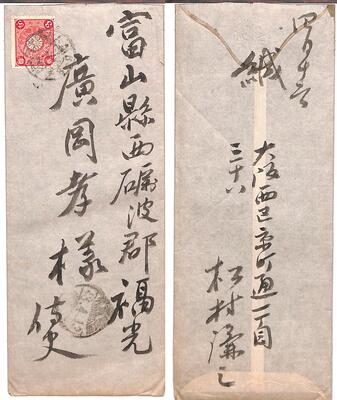 富山縣西礪波郡福光
廣岡孝様
侍史
四月十三日
緘
大阪西区京町通一丁目
三十八
松村謙之